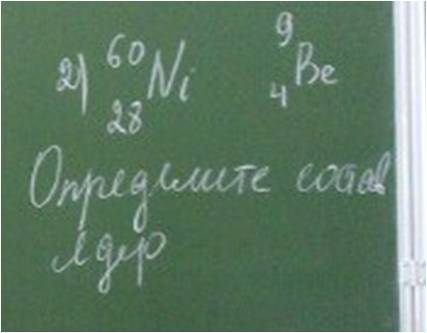 2) ⁶⁰₂₈Ni ⁹₄Be
Определите состав
ядер